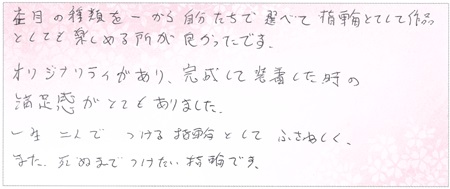 杢目の種類を一から自分たちで選べて指輪としても作品
としても楽しめる所が良かったです。
オリジナリティがあり、完成して装着した時の
満足感がとてもありました。
一生二人でつける指輪としてふさわしく、
また、死ぬまでつけたい指輪です。